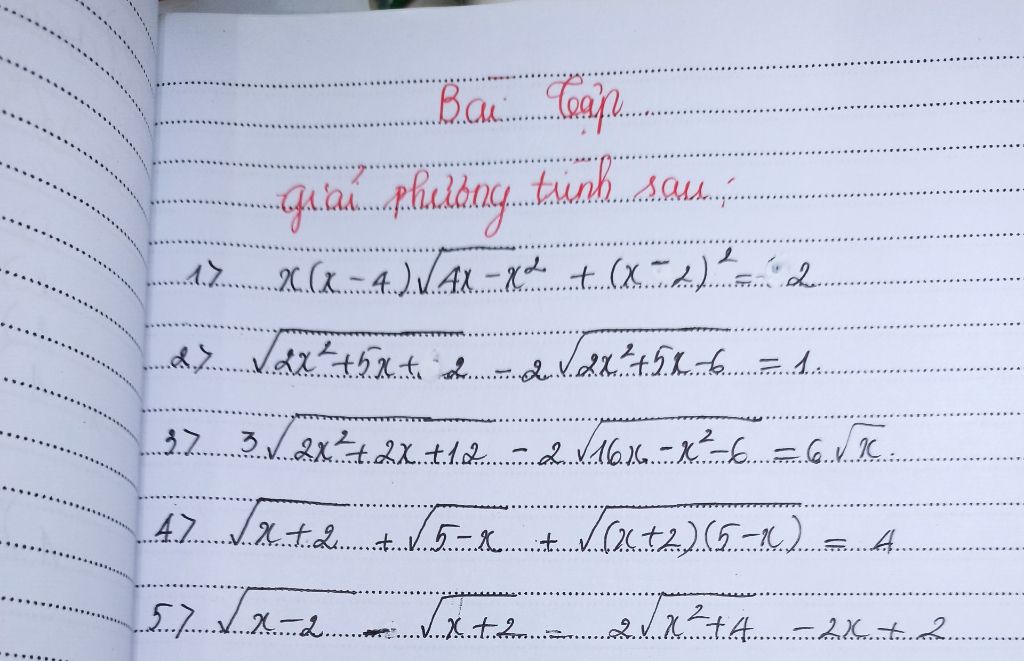 Bài tập
giải phương trình sau:
1> x(x-4)√(4x-x²) + (x-2)² = 2
2> √(2x²+5x+2) - 2√(2x²+5x-6) = 1.
3> 3√(2x²+2x+12) - 2√(16x-x²-6) = 6√x.
4> √(x+2) + √(5-x) + √((x+2)(5-x)) = 4
5> √(x-2) - √(x+2) = 2√(x²+4) - 2x + 2